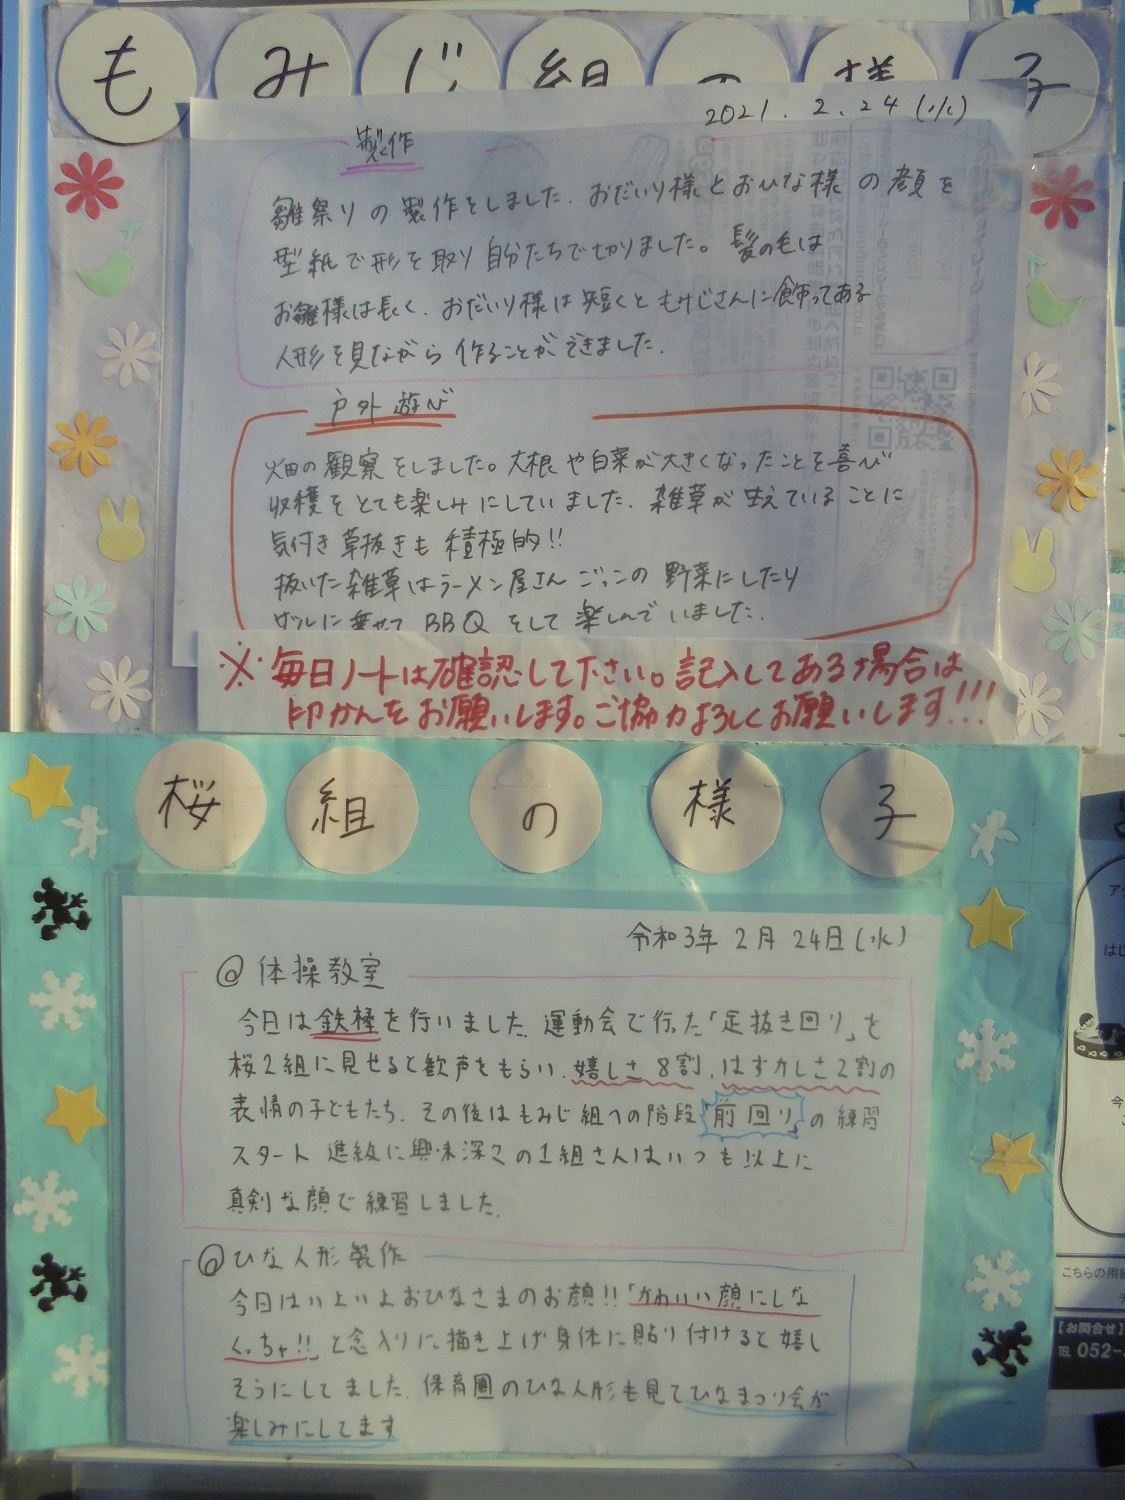 もみじ組の様子
2021.2.24(水)
製作
雛祭りの製作をしました。おだいり様とおひな様の顔を
型紙で形を取り自分たちで切りました。髪の毛は
お雛様は長く、おだいり様は短くともみじさんに飾ってある
人形を見ながら作ることができました。
戸外遊び
畑の観察をしました。大根や白菜が大きくなったことを喜び
収穫をとても楽しみにしていました。雑草が生えていることに
気付き草抜きも積極的!!
抜いた雑草はラーメン屋さんごっこの野菜にしたり
に乗せてBBQをして楽しんでいました。
※毎日ノートは確認して下さい。記入してある場合は
印かんをお願いします。ご協力よろしくお願いします!!!
桜組の様子
令和3年2月24日(水)
◎体操教室
今日は鉄棒を行いました。運動会で行った「足抜き回り」を
桜2組に見せると歓声をもらい、嬉しさ8割、はずかしさ2割の
表情の子どもたち。その後はもみじ組への階段「前回り」の練習
スタート 進級に興味深々の1組さんはいつも以上に
真剣な顔で練習しました。
◎ひな人形製作
今日はいよいよおひなさまのお顔!!「かわいい顔にしな
くっちゃ!!」と念入りに描き上げ身体に貼り付けると嬉し
そうにしてました。保育園のひな人形も見てひなまつり会が
楽しみにしてます
はじ
今
こちらの用紙
【お問合せ】
TEL 052-